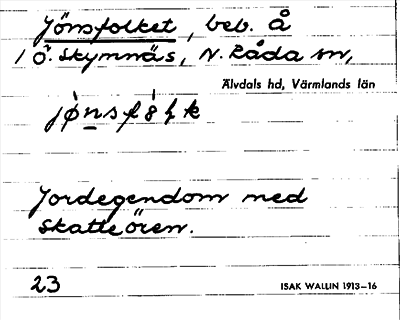 Jönsfolket, beb. Å
/ Ö. Skymnäs, N. Råda sn,
Älvdals hd, Värmlands län
Jordegendom med
Skatteören.
23 ISAK WALLIN 1913–16